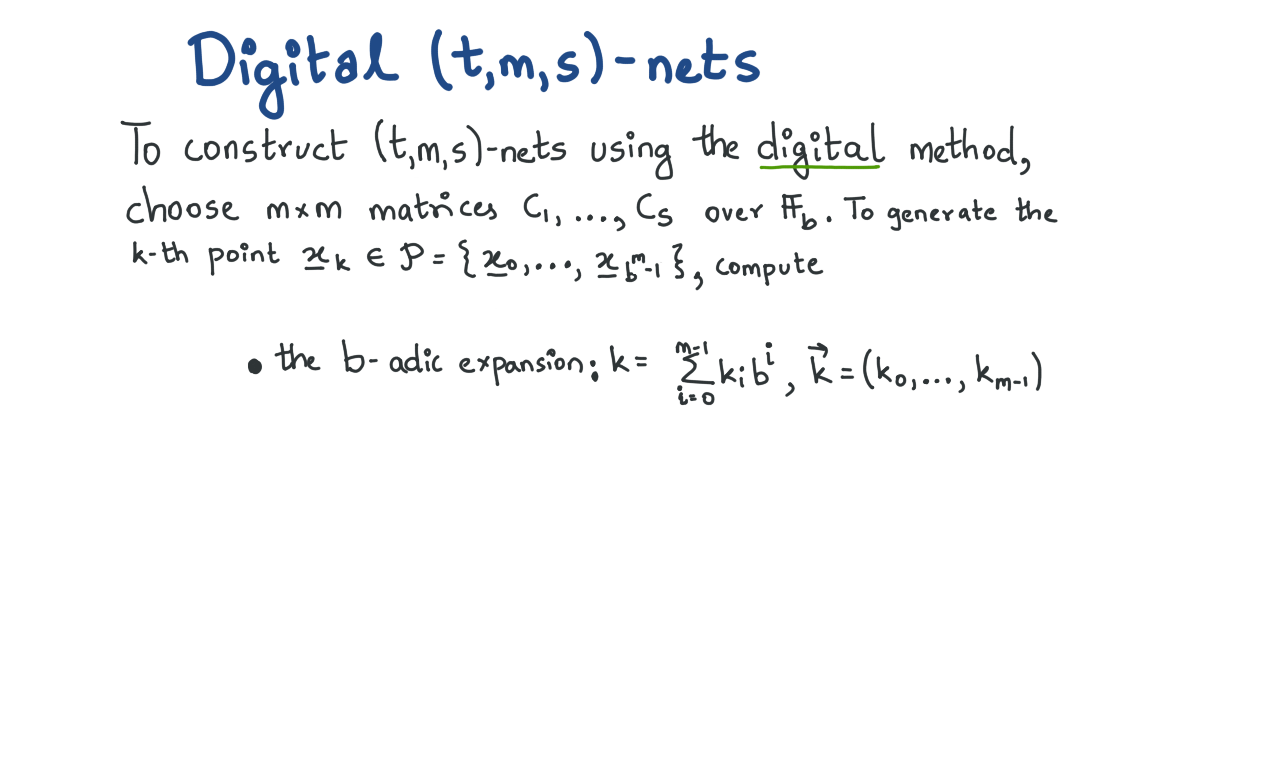 Digital (t,m,s)-nets
To construct (t,m,s)-nets using the digital method,
choose m×m matrices C₁, ..., Cₛ over 𝔽_b. To generate the
k-th point x̲ₖ ∈ 𝒫 = {x̲₀, ..., x̲_{b^m-1}}, compute
• the b-adic expansion: k = ∑_{i=0}^{m-1} kᵢ bⁱ, k⃗ = (k₀, ..., k_{m-1})